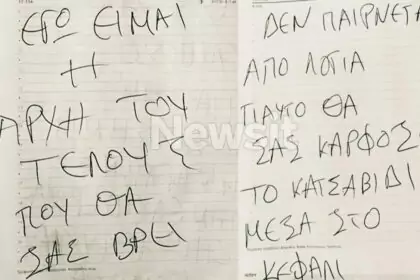 ΕΓΩ ΕΙΜΑΙ
Η
ΑΡΧΗ ΤΟΥ
ΤΕΛΟΥΣ
ΠΟΥ ΘΑ
ΣΑΣ ΒΡΕΙ
ΔΕΝ ΠΑΙΡΝΕΤΑ
ΑΠΟ ΛΟΓΙΑ
ΓΙΑΥΤΟ ΘΑ
ΣΑΣ ΚΑΡΦΩΣ
ΤΟ ΚΑΤΣΑΒΙΔΙ
ΜΕΣΑ ΣΤΟ
ΚΕΦΑΛΙ
Newsit